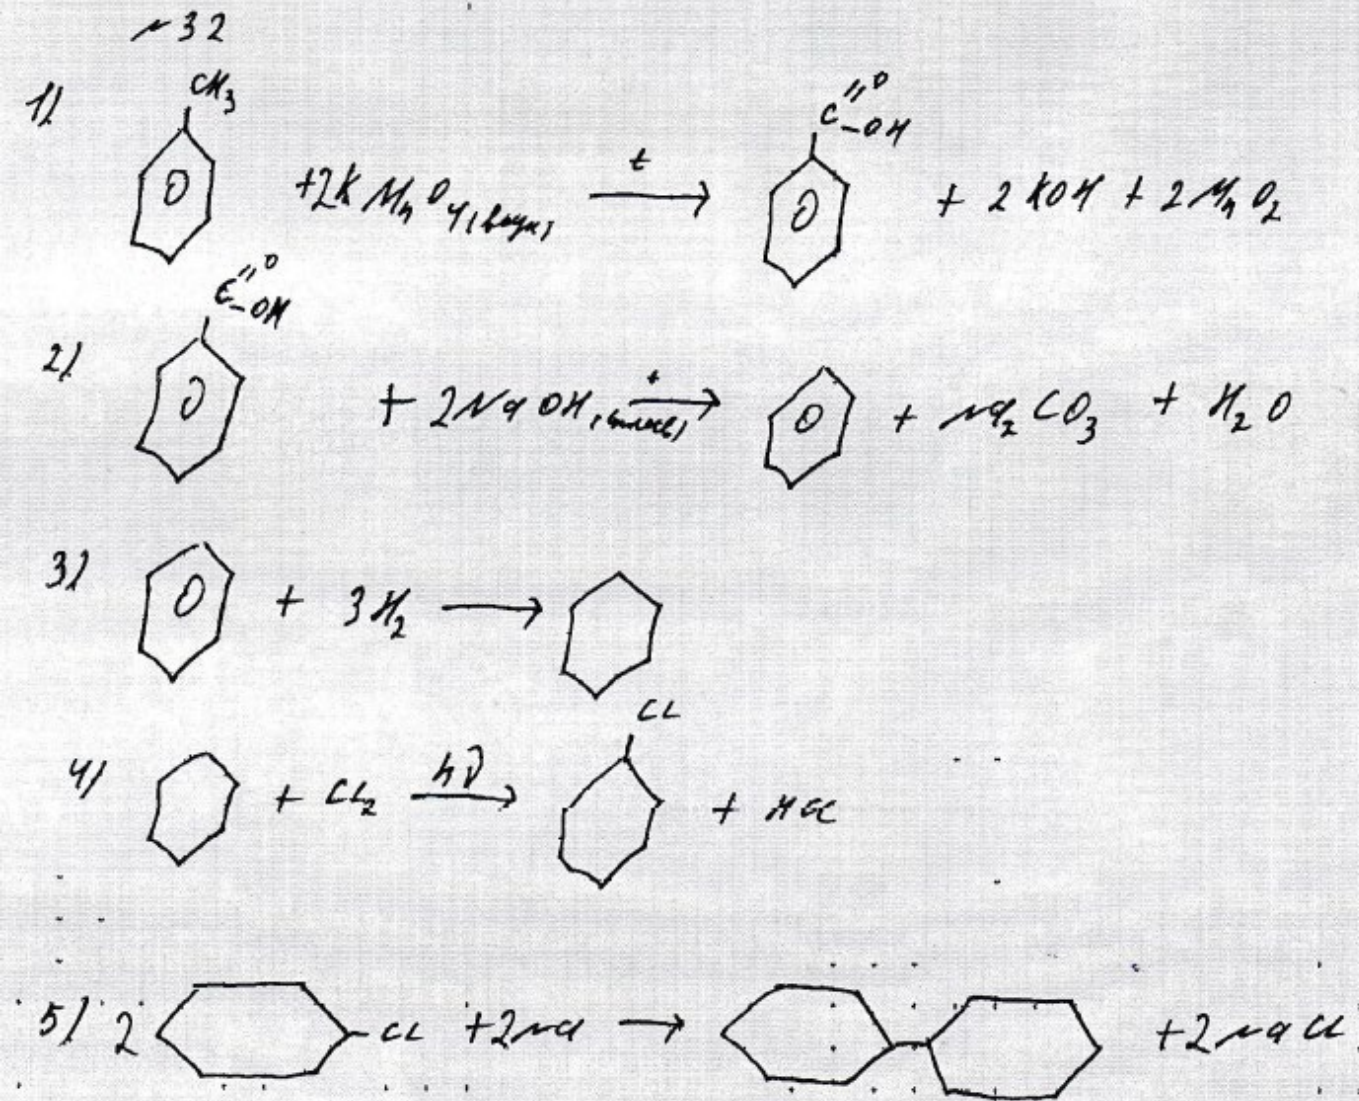 №32
1) CH₃ + 2KMnO₄ (водн) t → C=O -OH + 2KOH + 2MnO₂
2) C=O -OH + 2NaOH t → + Na₂CO₃ + H₂O
3) + 3H₂ →
4) + Cl₂ hν → Cl + HCl
5) 2 -Cl + 2Na → + 2NaCl